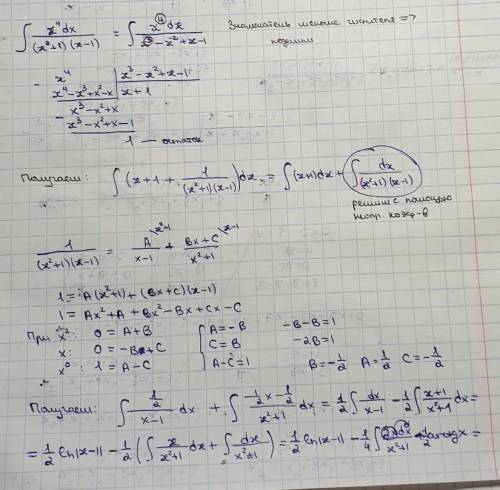 ∫ x⁴dx / (x²+1)(x-1) = ∫ x⁴dx / x³-x²+x-1    Знаменатель меньше числителя =>
поделим
- x⁴ | x³-x²+x-1
x⁴-x³+x²-x | x+1
- x³-x²+x
x³-x²+x-1
1 — остаток
Получаем: ∫ (x+1 + 1/(x²+1)(x-1)) dx = ∫(x+1)dx + ∫ dx/(x²+1)(x-1)
решим с помощью
неопр. коэф-в
1/(x²+1)(x-1) = A/(x-1) + Bx+C/(x²+1)
1 = A(x²+1) + (Bx+C)(x-1)
1 = Ax²+A + Bx²-Bx+Cx-C
При x²: 0 = A+B    { A=-B    -B-B=1
x: 0 = -B+C    C=B    -2B=1
x⁰: 1 = A-C    A-C=1    B=-1/2  A=1/2  C=-1/2
Получаем: ∫ 1/2 / x-1 dx + ∫ -1/2x-1/2 / x²+1 dx = 1/2 ∫ dx/x-1 - 1/2 ∫ x+1/x²+1 dx =
= 1/2 ln|x-1| - 1/2 (∫ x/x²+1 dx + ∫ dx/x²+1) = 1/2 ln|x-1| - 1/4 ∫ 2xdx/x²+1 - 1/2 arctgx =